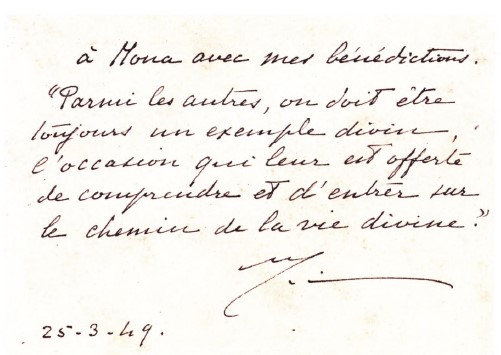 à Mona avec mes bénédictions.
"Parmi les autres, on doit être
toujours un exemple divin,
l'occasion qui leur est offerte
de comprendre et d'entrer sur
le chemin de la vie divine."
25-3-49.